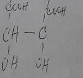 COOH COOH
CH — C
OH OH